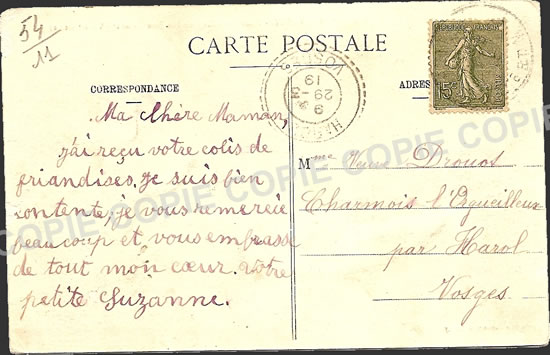 54
11
CARTE POSTALE
CORRESPONDANCE
ADRES
Ma Chère Maman,
j'ai reçu votre colis de
friandises. Je suis bien
contente, je vous remercie
beaucoup et vous embrasse
de tout mon cœur. Votre
petite Suzanne.
Mme Veuve Drouot
Charmois l'Orgueilleux
par Harol
Vosges
15c
VOSGES
9
29
19
COPIE COPIE COPIE COPIE COPIE COPIE